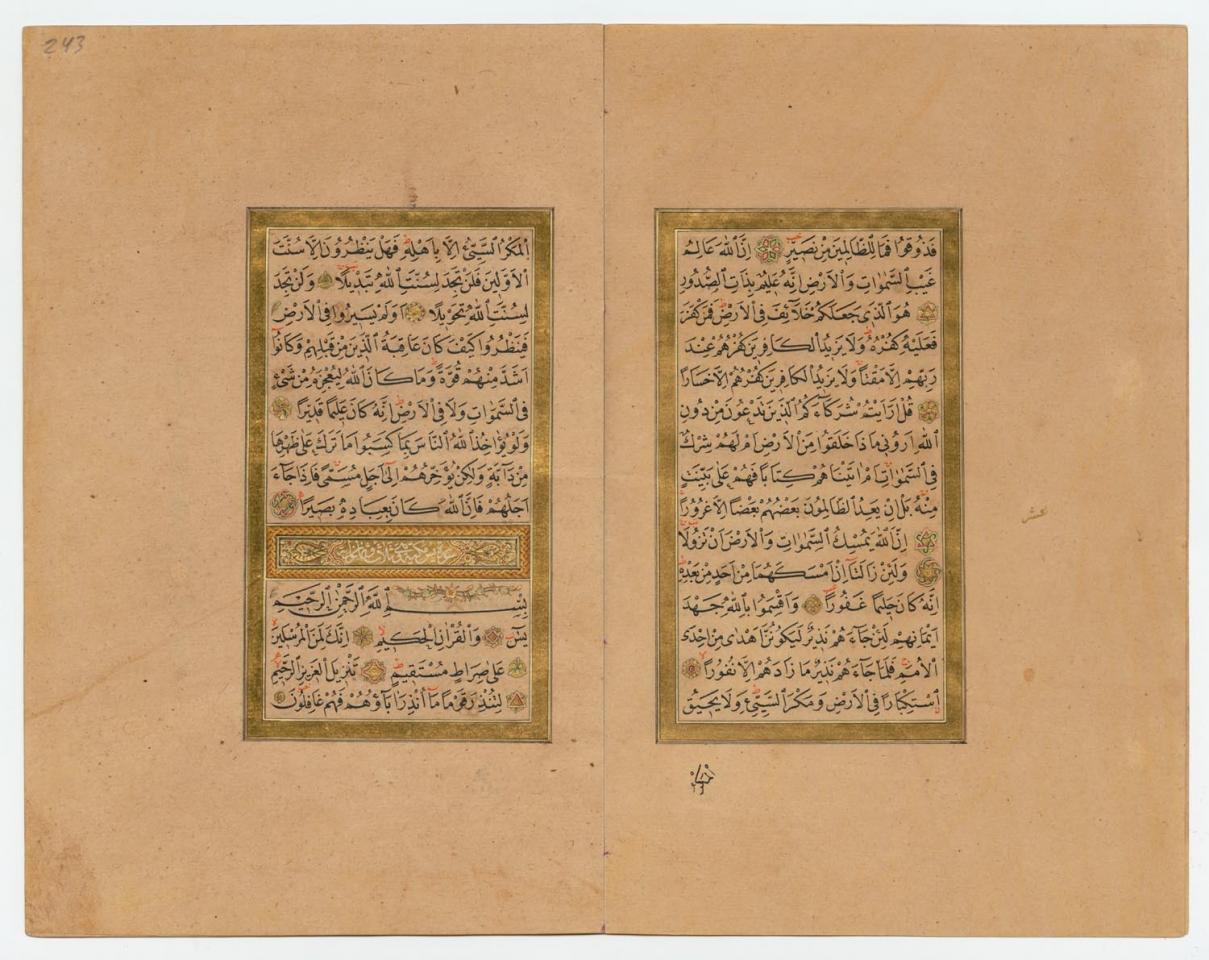 243
فَذُوقُوا فَمَا لِلظَّالِمِينَ مِنْ نَصِيرٍ اِنَّ اللهَ عَالِمُ
غَيْبِ السَّمٰوَاتِ وَالْاَرْضِ اِنَّهُ عَلِيمٌ بِذَاتِ الصُّدُورِ
هُوَ الَّذِى جَعَلَكُمْ خَلَآئِفَ فِى الْاَرْضِ فَمَنْ كَفَرَ
فَعَلَيْهِ كُفْرُهُ وَلَا يَزِيدُ الْكَافِرِينَ كُفْرُهُمْ عِنْدَ
رَبِّهِمْ اِلَّا مَقْتًا وَلَا يَزِيدُ الْكَافِرِينَ كُفْرُهُمْ اِلَّا خَسَارًا
قُلْ اَرَاَيْتُمْ شُرَكَآءَكُمُ الَّذِينَ تَدْعُونَ مِنْ دُونِ
اللهِ اَرُونِى مَاذَا خَلَقُوا مِنَ الْاَرْضِ اَمْ لَهُمْ شِرْكٌ
فِى السَّمٰوَاتِ اَمْ اٰتَيْنَاهُمْ كِتَابًا فَهُمْ عَلٰى بَيِّنَتٍ
مِنْهُ بَلْ اِنْ يَعِدُ الظَّالِمُونَ بَعْضُهُمْ بَعْضًا اِلَّا غُرُورًا
اِنَّ اللهَ يُمْسِكُ السَّمٰوَاتِ وَالْاَرْضَ اَنْ تَزُولَا
وَلَئِنْ زَالَتَآ اِنْ اَمْسَكَهُمَا مِنْ اَحَدٍ مِنْ بَعْدِهِ
اِنَّهُ كَانَ حَلِيمًا غَفُورًا وَاَقْسَمُوا بِاللهِ جَهْدَ
اَيْمَانِهِمْ لَئِنْ جَآءَهُمْ نَذِيرٌ لَيَكُونُنَّ اَهْدٰى مِنْ اِحْدَى
الْاُمَمِ فَلَمَّا جَآءَهُمْ نَذِيرٌ مَا زَادَهُمْ اِلَّا نُفُورًا
اِسْتِكْبَارًا فِى الْاَرْضِ وَمَكْرَ السَّيِّئِ وَلَا يَحِيقُ
عشر
الْمَكْرُ السَّيِّئُ اِلَّا بِاَهْلِهِ فَهَلْ يَنْظُرُونَ اِلَّا سُنَّتَ
الْاَوَّلِينَ فَلَنْ تَجِدَ لِسُنَّتِ اللهِ تَبْدِيلًا وَلَنْ تَجِدَ
لِسُنَّتِ اللهِ تَحْوِيلًا اَوَلَمْ يَسِيرُوا فِى الْاَرْضِ
فَيَنْظُرُوا كَيْفَ كَانَ عَاقِبَةُ الَّذِينَ مِنْ قَبْلِهِمْ وَكَانُوا
اَشَدَّ مِنْهُمْ قُوَّةً وَمَا كَانَ اللهُ لِيُعْجِزَهُ مِنْ شَىْءٍ
فِى السَّمٰوَاتِ وَلَا فِى الْاَرْضِ اِنَّهُ كَانَ عَلِيمًا قَدِيرًا
وَلَوْ يُؤَاخِذُ اللهُ النَّاسَ بِمَا كَسَبُوا مَا تَرَكَ عَلٰى ظَهْرِهَا
مِنْ دَآبَّةٍ وَلٰكِنْ يُؤَخِّرُهُمْ اِلٰٓى اَجَلٍ مُسَمًّى فَاِذَا جَآءَ
اَجَلُهُمْ فَاِنَّ اللهَ كَانَ بِعِبَادِهِ بَصِيرًا
سورة يس مكية
بِسْمِ اللهِ الرَّحْمٰنِ الرَّحِيمِ
يٰسٓ وَالْقُرْاٰنِ الْحَكِيمِ اِنَّكَ لَمِنَ الْمُرْسَلِينَ
عَلٰى صِرَاطٍ مُسْتَقِيمٍ تَنْزِيلَ الْعَزِيزِ الرَّحِيمِ
لِتُنْذِرَ قَوْمًا مَآ اُنْذِرَ اٰبَآؤُهُمْ فَهُمْ غَافِلُونَ